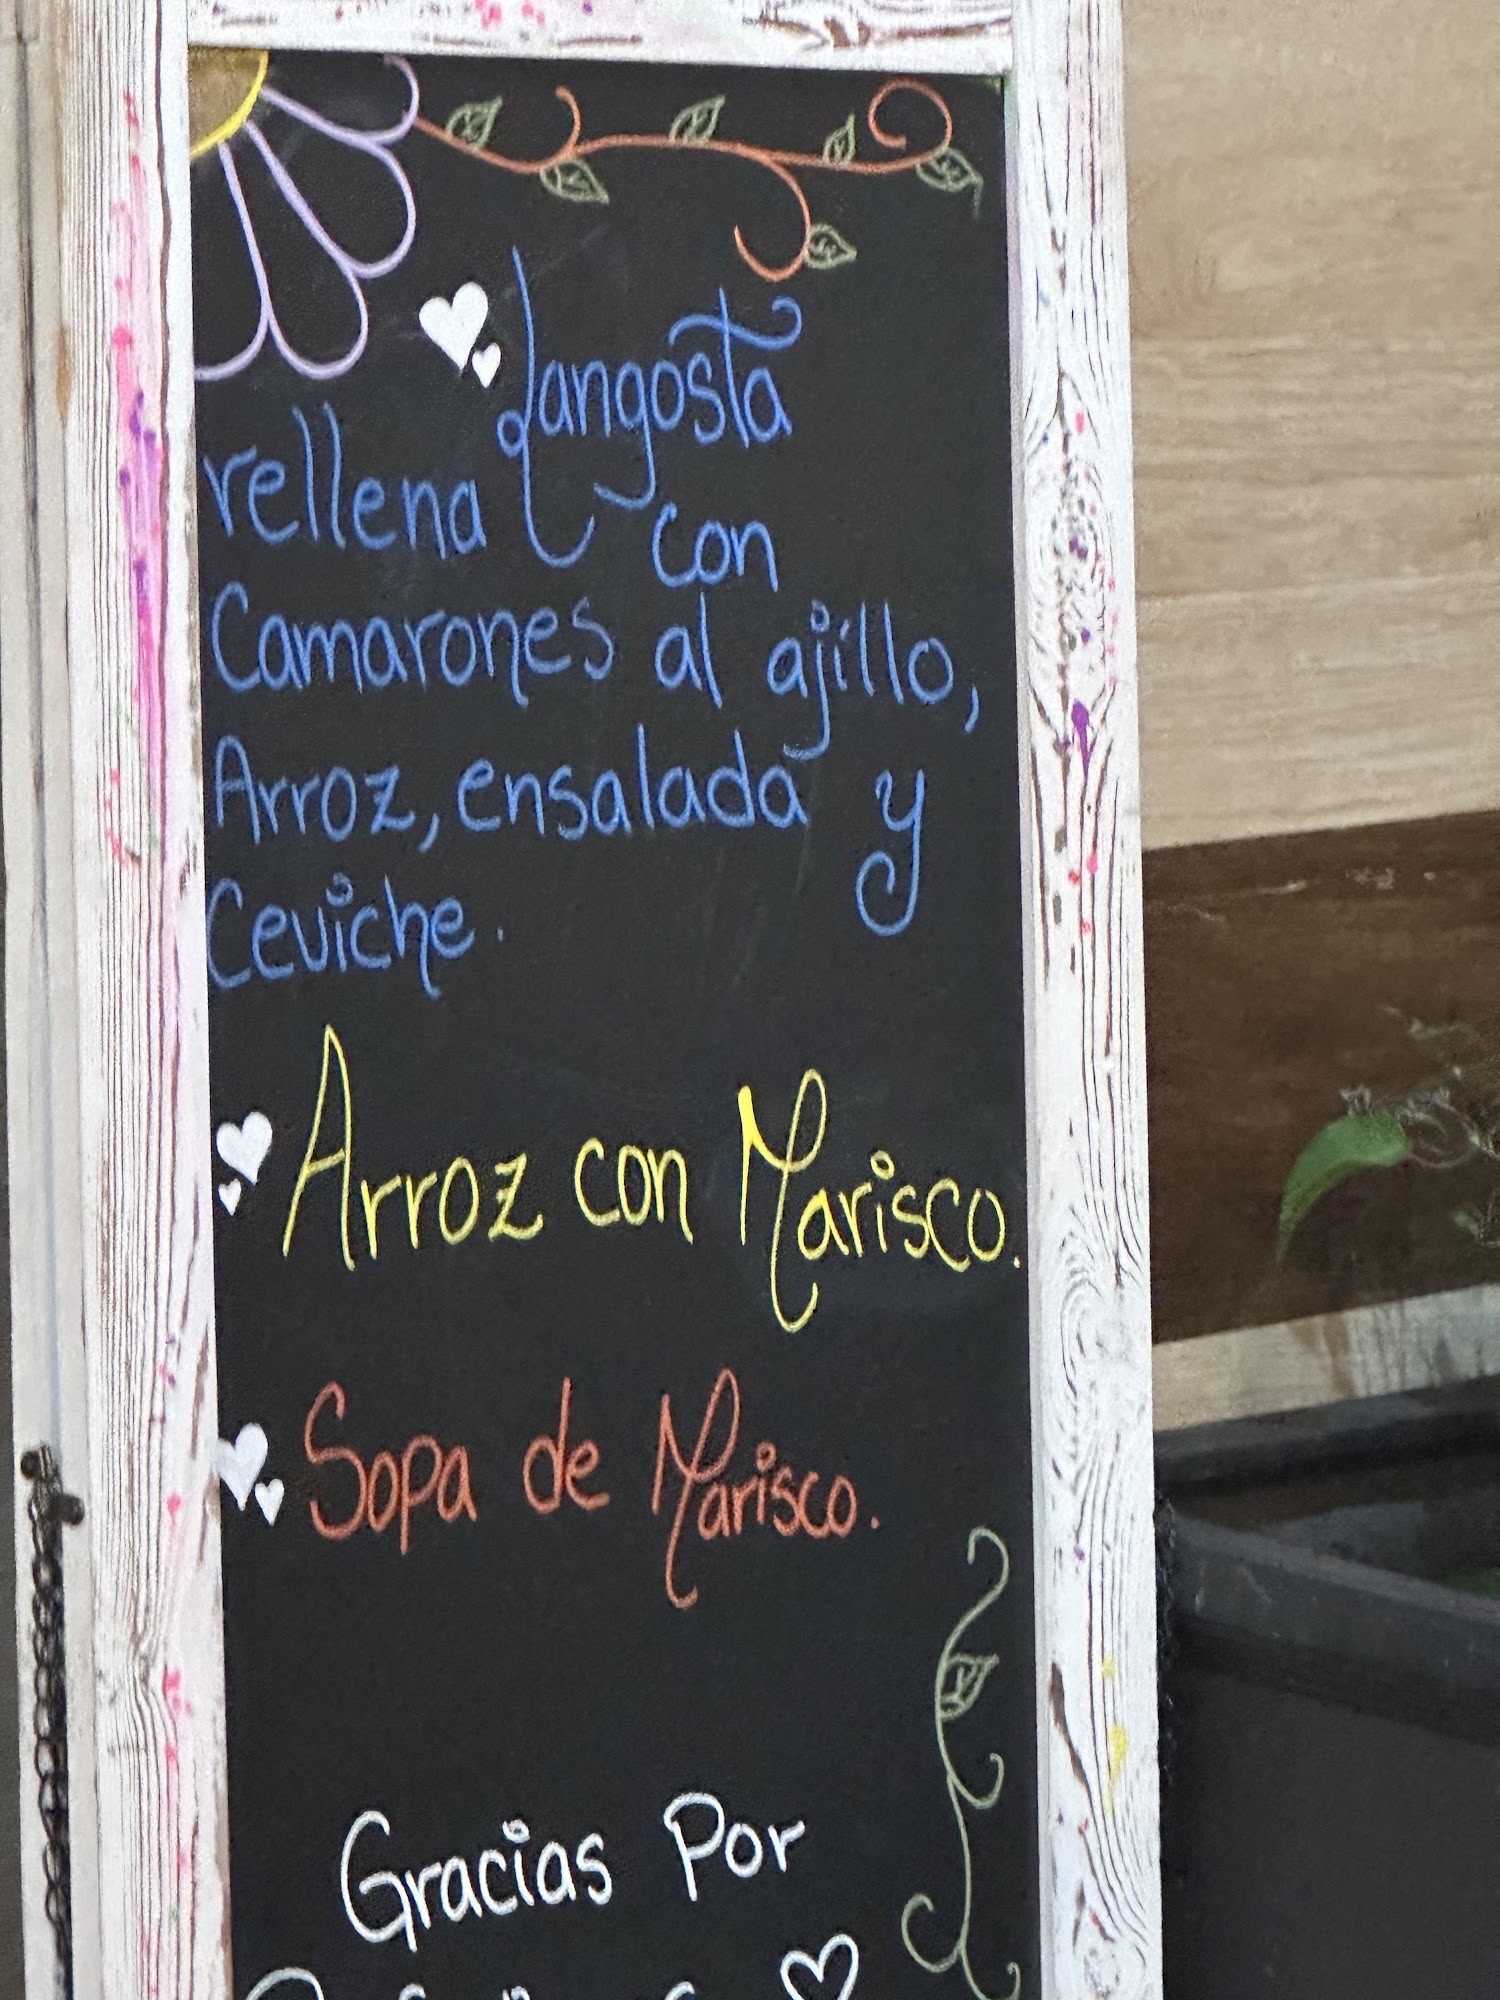 Langosta
rellena con
Camarones al ajillo,
Arroz, ensalada y
Ceviche.
Arroz con Marisco.
Sopa de Marisco.
Gracias Por